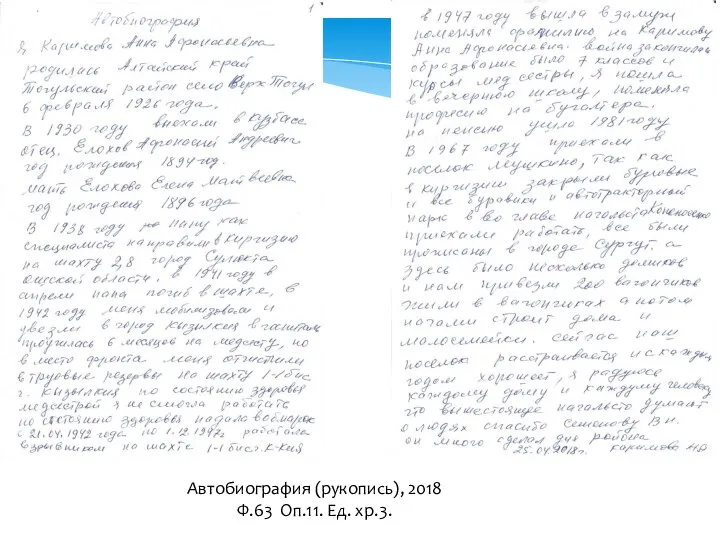 Автобиография
1
Я Каримова Анна Афонасьевна
родилась Алтайский край
Тогульский район село Верх Тогул
6 февраля 1926 года.
В 1930 году вехоли в Кузбасс
отец. Елохов Афонасий Андреевич
год рождения 1894 год.
мать Елохова Елена Матвеевна
год рождения 1896 года
В 1938 году папу как
специалиста направили в Киргизию
на шахту 2,8 город Сулюкта
Ошской области. в 1941 году в
апрели папа погиб в шахте, в
1942 году меня мобилизовали и
увезли в город Кизилкия в госпиталь
проучилась 6 месяцов на медсестру, но
в место фронта меня отчистили
в трудовые резервы на шахту 1-1 бис
г. Кызылкия по состоянию здоровья
медсестрой я не смогла работать
по состоянию здоровья падала в обморок
с 21.04.1942 года по 1.12.1947г работала
взрывником на шахте 1-1 бис г. К-Кия
в 1947 году вышла в замуж
поменяла фамилию на Каримову
Анна Афонасьевна. война закончилась
образование было 7 классов и
курсы мед сестры, я пошла
в вечернюю школу, поменяла
професию на бугалтера.
на пенсию ушла 1981 году
В 1967 году приехали в
поселок Леушкино, так как
в Киргизии закрыли буровые
и все буравики и автотракторный
парк в во главе начальста
приехали работать, все были
прописаны в городе Сургут. а
здесь было несколько домиков
и нам привезли 200 вагончиков
жили в вагончиках а потом
начали строит дома и
малосемейки. сейчас наш
поселок расстраивается и с каждым
годом хорошеет, я радуюсь
каждому дому и каждому человеку
что вышестоящее начальсто думают
о людях спасибо Семенову В.Н.
он много сделал для района
25.04.2018г. Каримова АА
Автобиография (рукопись), 2018
Ф.63 Оп.11. Ед. хр.3.